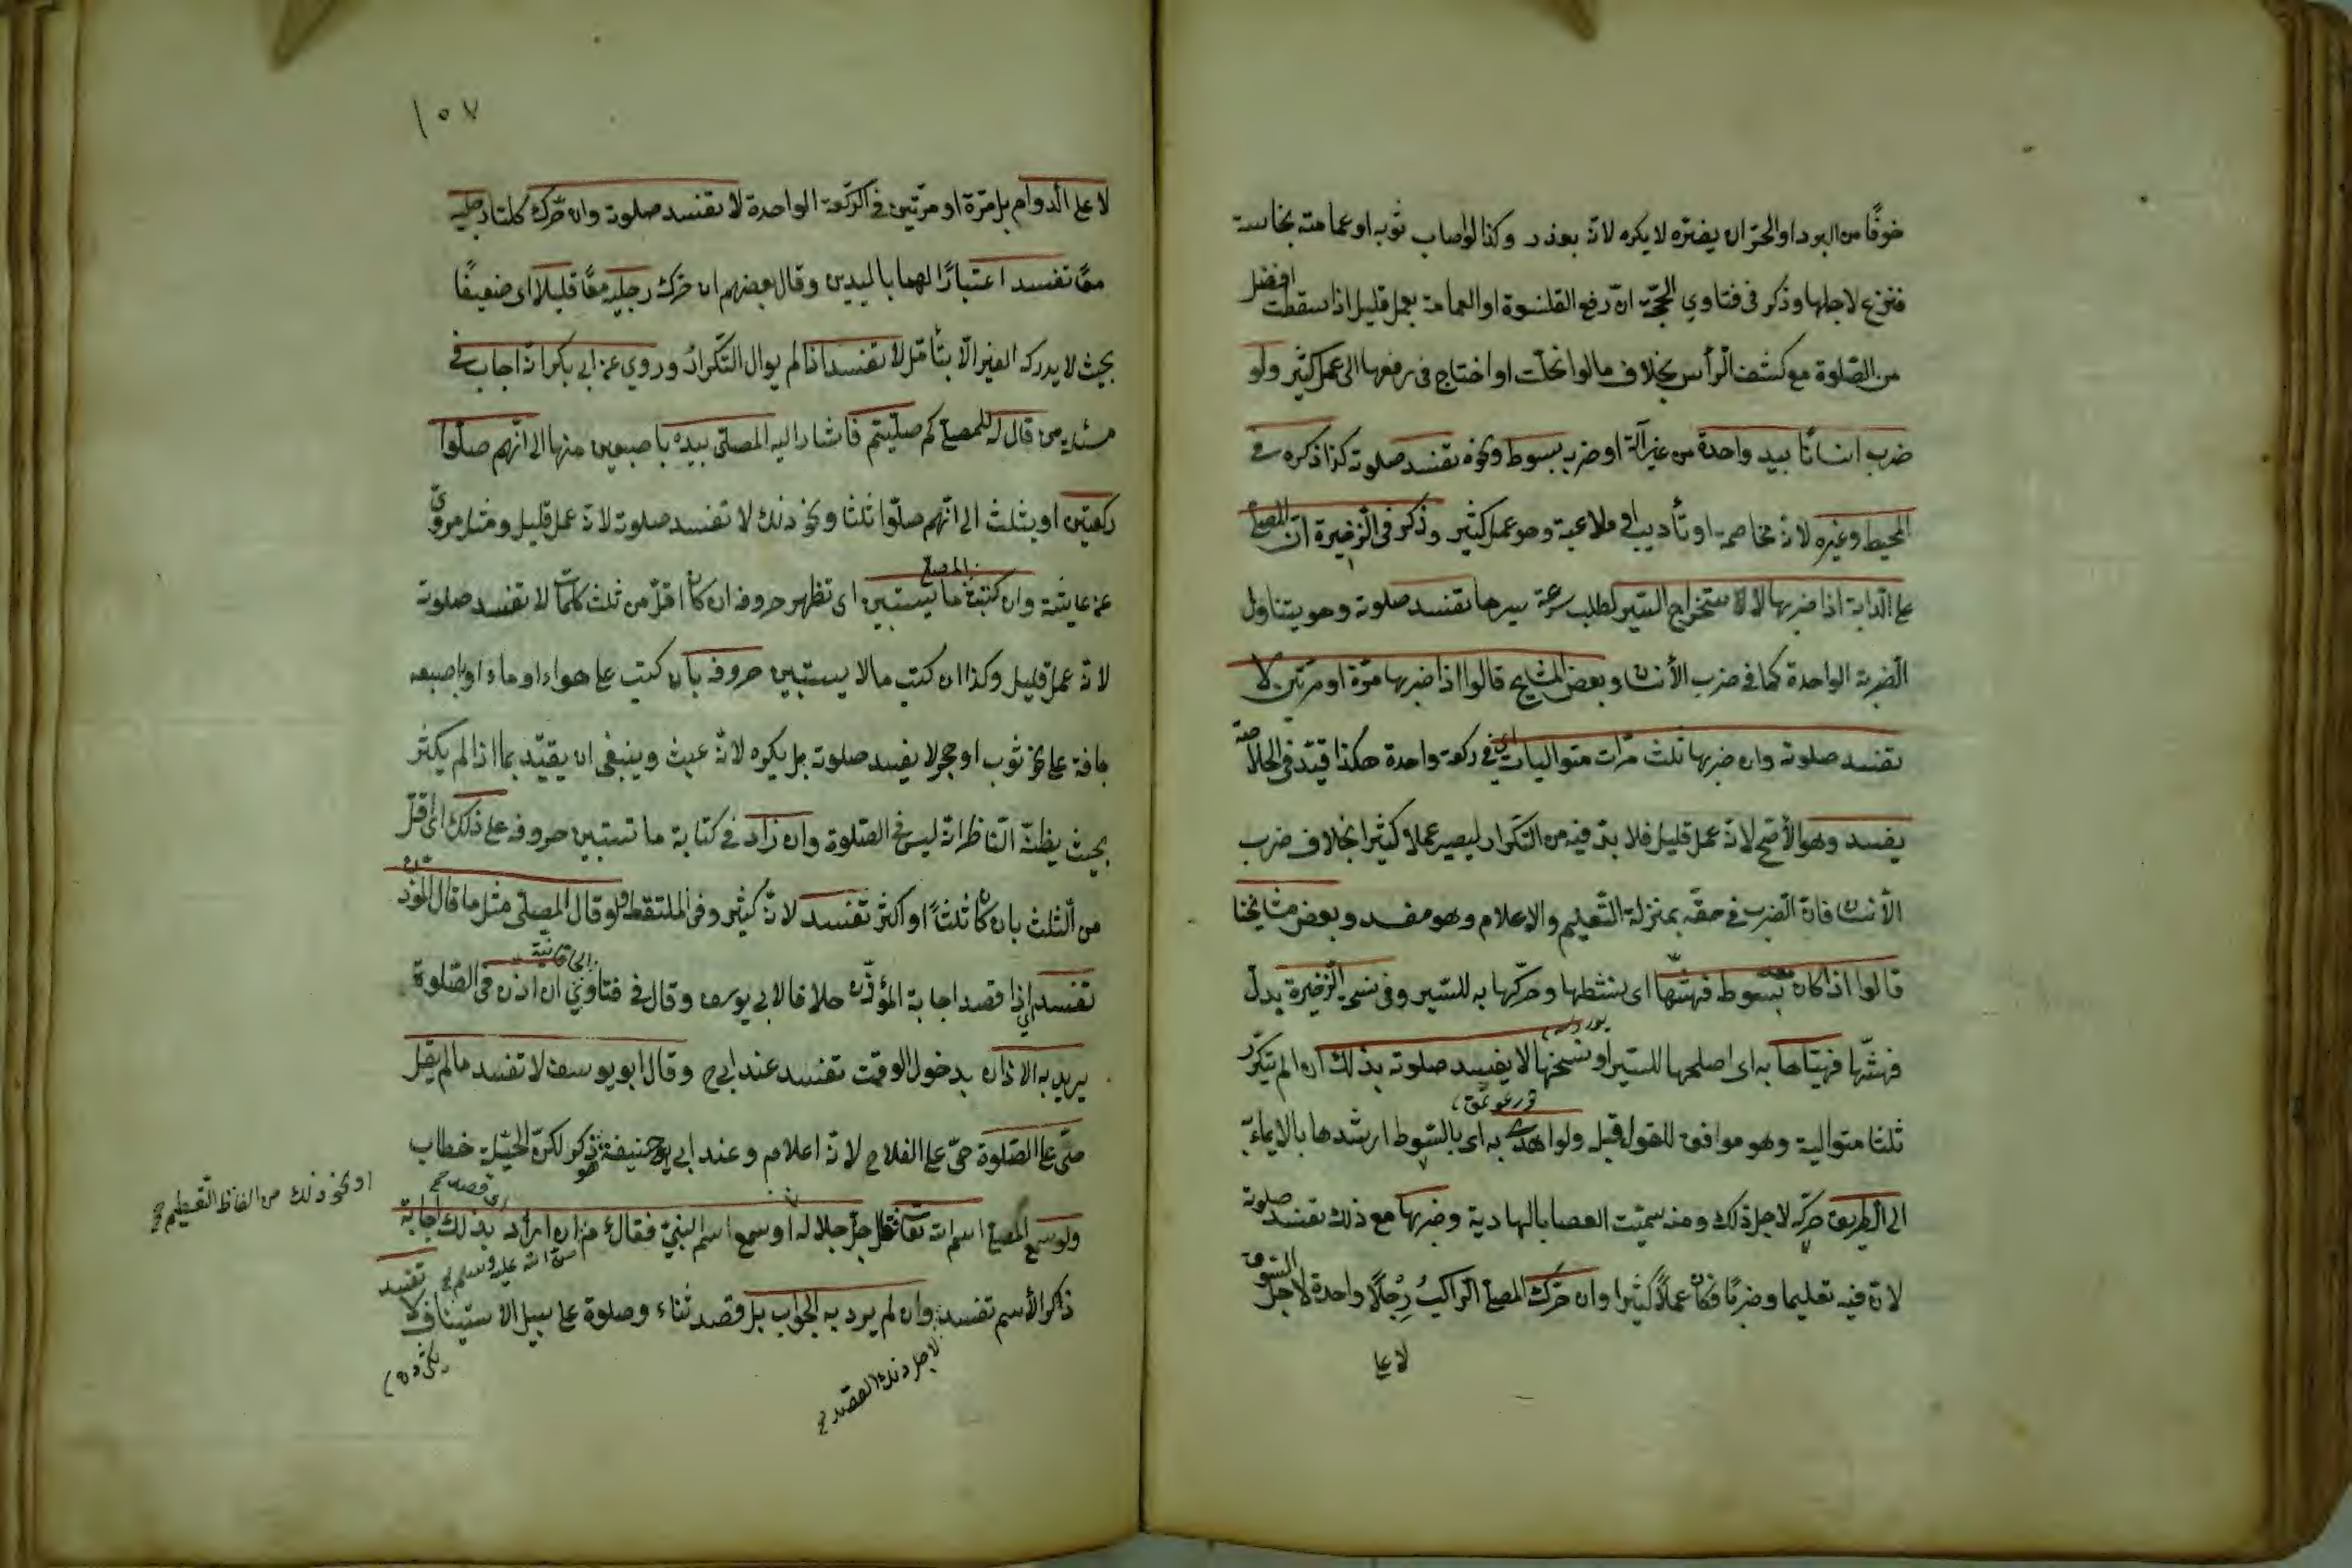 خوفًا من البرد او الحرّ ان يضرّه لا يكره لانّه بعذر وكذا لو اصاب ثوبه او عمامته نجاسة
فنزع لاجلها وذكر في فتاوي الحجّة انّ رفع القلنسوة او العمامة بعمل قليل اذا سقطت افضل
من الصّلوة مع كشف الرأس بخلاف ما لو انحلّت او احتاج في رفعها الى عمل كثير ولو
ضرب انسانًا بيد واحدة من غير آلة او ضرب بسوط ونحوه تفسد صلوته كذا ذكره في
المحيط وغيره لانّه مخاصمة او تأديب او ملاعبة وهو عمل كثير وذكر في الذّخيرة انّ المصلّي
على الدّابة اذا ضربها لاستخراج السّير لطلب سرعة سيرها تفسد صلوته وهو يتناول
الضّربة الواحدة كما في ضرب الأنسان وبعض المشايخ قالوا اذا ضربها مرّة او مرّتين لا
تفسد صلوته وان ضربها ثلث مرّات متواليات اي في ركعة واحدة هكذا قيّد في الخلاصة
يفسد وهو الأصحّ لانّه عمل قليل فلا بدّ فيه من التّكرار ليصير عملا كثيرا بخلاف ضرب
الأنسان فانّ الضّرب في حقّه بمنزلة التّعليم والاعلام وهو مفسد وبعض مشايخنا
قالوا اذا كان معه سوط فهشّها اي نشطها وحرّكها به للسّير وفي نسخ الذّخيرة بدل
فهشّها فهيّأها به اي اصلحها للسّير او نسخها لا يفسد صلوته بذلك ان لم تيكرّر
ثلثا متوالية وهو موافق للقول قبل ولو اهدى به اي بالسّوط ارشدها بالايماء به
الى الطّريق حرّكه لاجل ذلك ومنه سميّت العصا بالهادية وضربها مع ذلك تفسد صلوته
لانّ فيه تعليما وضربًا فكان عملاً كثيرا وان حرّك المصلّي الرّاكب رِجْلاً واحدة لاجل السّوق
لا على
١٠٧
لا على الدوام بل مرّة او مرّتين في الركّعة الواحدة لا تفسد صلوته وان حرّك كلتا رجليه
معًا تفسد اعتبارًا لهما باليدين وقال بعضهم ان حرّك رجليه معًا قليلا اى ضعيفًا
بحيث لا يدركه الغير الّا بتأمّل لا تفسد اذا لم يوال التّكرار وروي عن ابي بكر انّه اجاب في
مسئلة من قال له للمصلّي كم صلّيتم فاشار اليه المصلّى بيده باصبعين منها الى انّهم صلّوا
ركعتين او بثلث الى انّهم صلّوا ثلثا ونحو ذلك لا تفسد صلوته لانّه عمل قليل ومثله مروىّ
عن عايشة وان كتب المصلّي ما تستبين اى تظهر حروفه ان كان اقلّ من ثلث كلمات لا تفسد صلوته
لانّه عمل قليل وكذا ان كتب ما لا يستبين حروفه بأن كتب على هواء او ماء او باصبعه
جافة على نحو ثوب او حجر لا يفسد صلوته بل يكره لانّه عبث وينبغى ان يقيّد بما اذا لم يكثر
بحيث يظنّه النّاظر انّه ليس في الصّلوة وان زاد في كتابة ما تستبين حروفه على ذلك اى اقلّ
من الثّلث بان كان ثلثًا او اكثر تفسد لانّه كثير وفي الملتقط ولو قال المصلّى مثل ما قال المؤذّن
تفسد اي اذا قصد اجابة المؤذّن خلافا لابي يوسف وقال في فتاوى الخاقانيّة ان اذن في الصّلوة
يريد به الاذان بدخول الوقت تفسد عند ابي ح وقال ابو يوسف لا تفسد ما لم يقل
حيّ على الصّلوة حيّ على الفلاح لانّه اعلام وعند ابي حنيفة هو ذكر لكنّ الحيّعلة خطاب
ولو سمع المصلّي اسم اللّه تعالى فقال جلّ جلاله او سمع اسم النّبيّ فقال صلّى اللّه عليه وسلم ان اراد بذلك اجابة
اى قصد
او نحو ذلك من الفاظ التّعظيم
ذاكر الأسم تفسد وان لم يرد به الجواب بل قصد ثناء وصلوة على سبيل الاستيناف لا تفسد
لاجل ذلك القصد